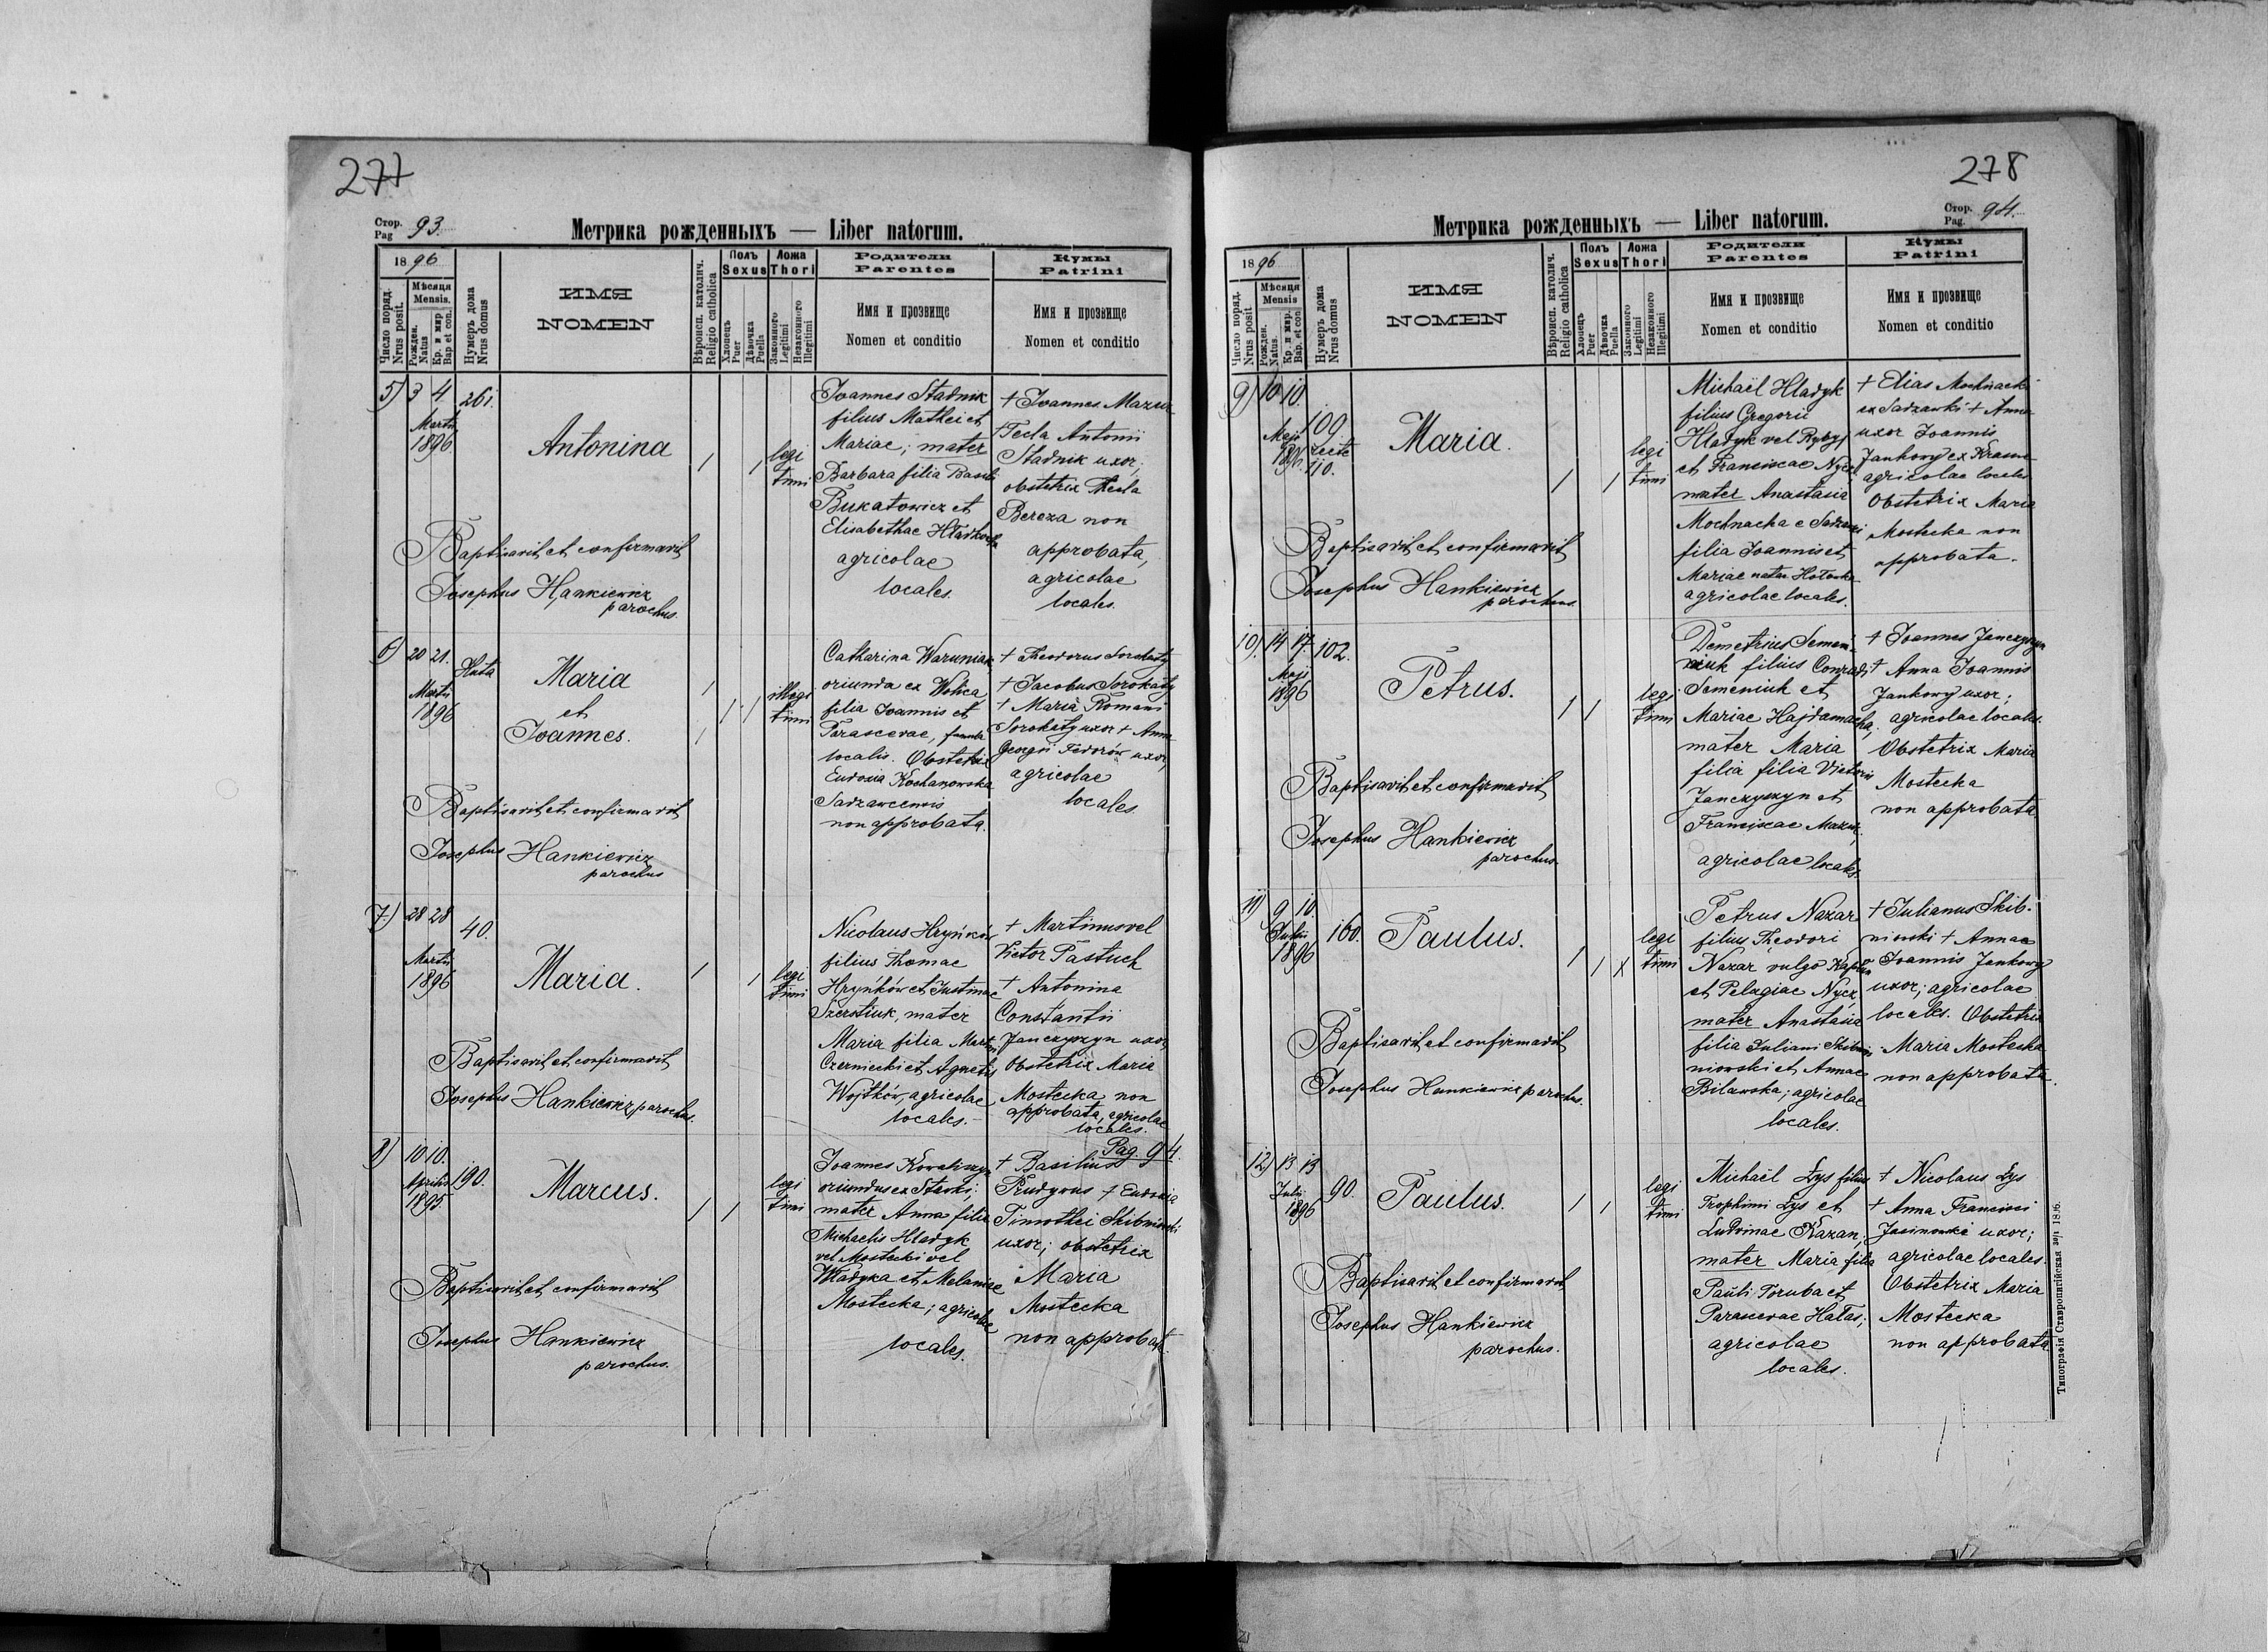 277
Стор.
Pag 93.
Метрика рожденныхъ — Liber natorum.
1896
Число поряд.
Nrus posit.
Мѣсяця
Mensis.
Рожден.
Natus
Кр. и мир
Bap et con.
Нумеръ дома
Nrus domus
ИМЯ
NOMEN
Вѣроисп. католич.
Religio catholica
Полъ
Sexus
Хлопецъ
Puer
Дѣвочка
Puella
Ложа
Thori
Законного
Legitimi
Незаконного
Illegitimi
Родители
Parentes
Имя и прозвище
Nomen et conditio
Кумы
Patrini
Имя и прозвище
Nomen et conditio
5) 3 4 261.
Martii
1896
Antonina
/ / legi
timi
Joannes Stadnik
filius Mathei et
Mariae; mater
Barbara filia Basilii
Bukatowicz et
Elisabethae
agricolae
locales.
+ Joannes Mazur
+ Tecla Antonii
Stadnik uxor;
obstetrix Tecla
Bereza non
approbata,
agricolae
locales.
Baptisavit et confirmavit
Josephus Hankiewicz
parochus.
6) 20 21. Huta
Martii
1896
Maria
et
Joannes.
/ / / /
illegi
timi
Catharina Waruniak
oriunda ex Wolica
filia Joannis et
Parascevae, famula
localis. Obstetrix
Eudoxia Kochanowska
Sadzavcensis
non approbata.
+ Theodorus Sorokaty
+ Jacobus Sorokaty
+ Maria Romani
Sorokaty uxor + Anna
Georgii Fedorów uxor,
agricolae
locales
Baptisavit et confirmavit
Josephus Hankiewicz
parochus
7.) 28 28 40.
Martii
1896
Maria.
/ / legi
timi
Nicolaus Hryńków
filius Thomae
Hrynków et Justinae
Szerstiuk, mater
Maria filia Martini
Czerniecki et Agnetis
Wojtków, agricolae
locales.-
+ Martinus vel
Victor Pastuch
+ Antonina
Constantii
Janczyszyn uxor,
Obstetrix Maria
Mostecka non
approbata, agricolae
locales.
Baptisavit et confirmavit
Josephus Hankiewicz parochus.
8) 10 10. 190.
Aprilis
1895
Marcus.
/ / legi
timi
Joannes Kowaliszyn
oriundus ex Stawki;
mater Anna filia
Michaelis Hladyk
vel Mostecki vel
Władyka et Melaniae
Mostecka; agricolae
locales.
Pag. 94.
+ Basilius
Prudyvus + Eudoxia
Timothei Skibniowski
uxor; obstetrix
Maria
Mostecka
non approbata.
Baptisavit et confirmavit
Josephus Hankiewicz
parochus.
278
Стор.
Pag. 94.
Метрика рожденныхъ — Liber natorum.
1896
Число поряд.
Nrus posit.
Мѣсяця
Mensis
Рожден.
Natus.
Кр. и мир.
Bap. et con
Нумеръ дома
Nrus domus
ИМЯ
NOMEN
Вѣроисп. католич.
Religio catholica
Полъ
Sexus
Хлопецъ
Puer
Дѣвочка
Puella
Ложа
Thori
Законного
Legitimi
Незаконного
Illegitimi
Родители
Parentes
Имя и прозвище
Nomen et conditio
Кумы
Patrini
Имя и прозвище
Nomen et conditio
9) 10 10.
Maji
1896.
109
recte
110.
Maria.
/ / legi
timi
Michaël Hladyk
filius Gregorii
Hladyk vel Rybyj
et Franciscae Nycz,
mater Anastasia
Mochnacka e Sadzawki
filia Joannis et
Mariae natae
agricolae locales.
+ Elias Mochnacki
ex Sadzawki + Anna
uxor Joannis
Jankowy ex Krasne
agricolae locales
Obstetrix Maria
Mostecka non
approbata.
Baptisavit et confirmavit
Josephus Hankiewicz
parochus.
10). 14 17 102.
Maji
1896
Petrus.
/ / legi
timi
Demetrius Semeń-
niuk filius Conradi
Semeniuk et
Mariae Hajdamacha,
mater Maria
filia filia Victoris
Janczyszyn et
Franciscae Mazur,
agricolae locales.
+ Joannes Janczyszyn
+ Anna Joannis
Jankowy uxor;
agricolae locales.
Obstetrix Maria
Mostecka
non approbata
Baptisavit et confirmavit
Josephus Hankiewicz
parochus.
11) 9 10. 160.
Julii
1896
Paulus.
/ / x legi
timi
Petrus Nazar
filius Theodori
Nazar vulgo Kaplun
et Pelagiae Nycz,
mater Anastasia
filia Juliani Skib-
niowski et Annae
Bilawska; agricolae
locales.
+ Julianus Skib-
niowski + Annae
Joannis Jankowy
uxor; agricolae
locales. Obstetrix
Maria Mostecka
non approbata.
Baptisavit et confirmavit
Josephus Hankiewicz parochus.
12) 13 13 90.
Julii
1896
Paulus.
/ / legi
timi
Michaël Łys filius
Trophimi Łys et
Ludvinae Kazan;
mater Maria filia
Pauli Toruba et
Parascevae Hałas;
agricolae
locales.
+ Nicolaus Łys
+ Anna Francisci
Jasinowski uxor;
agricolae locales.
Obstetrix Maria
Mostecka
non approbata.
Baptisavit et confirmavit
Josephus Hankiewicz
parochus.
Типографія Ставропигійская зор 1896.